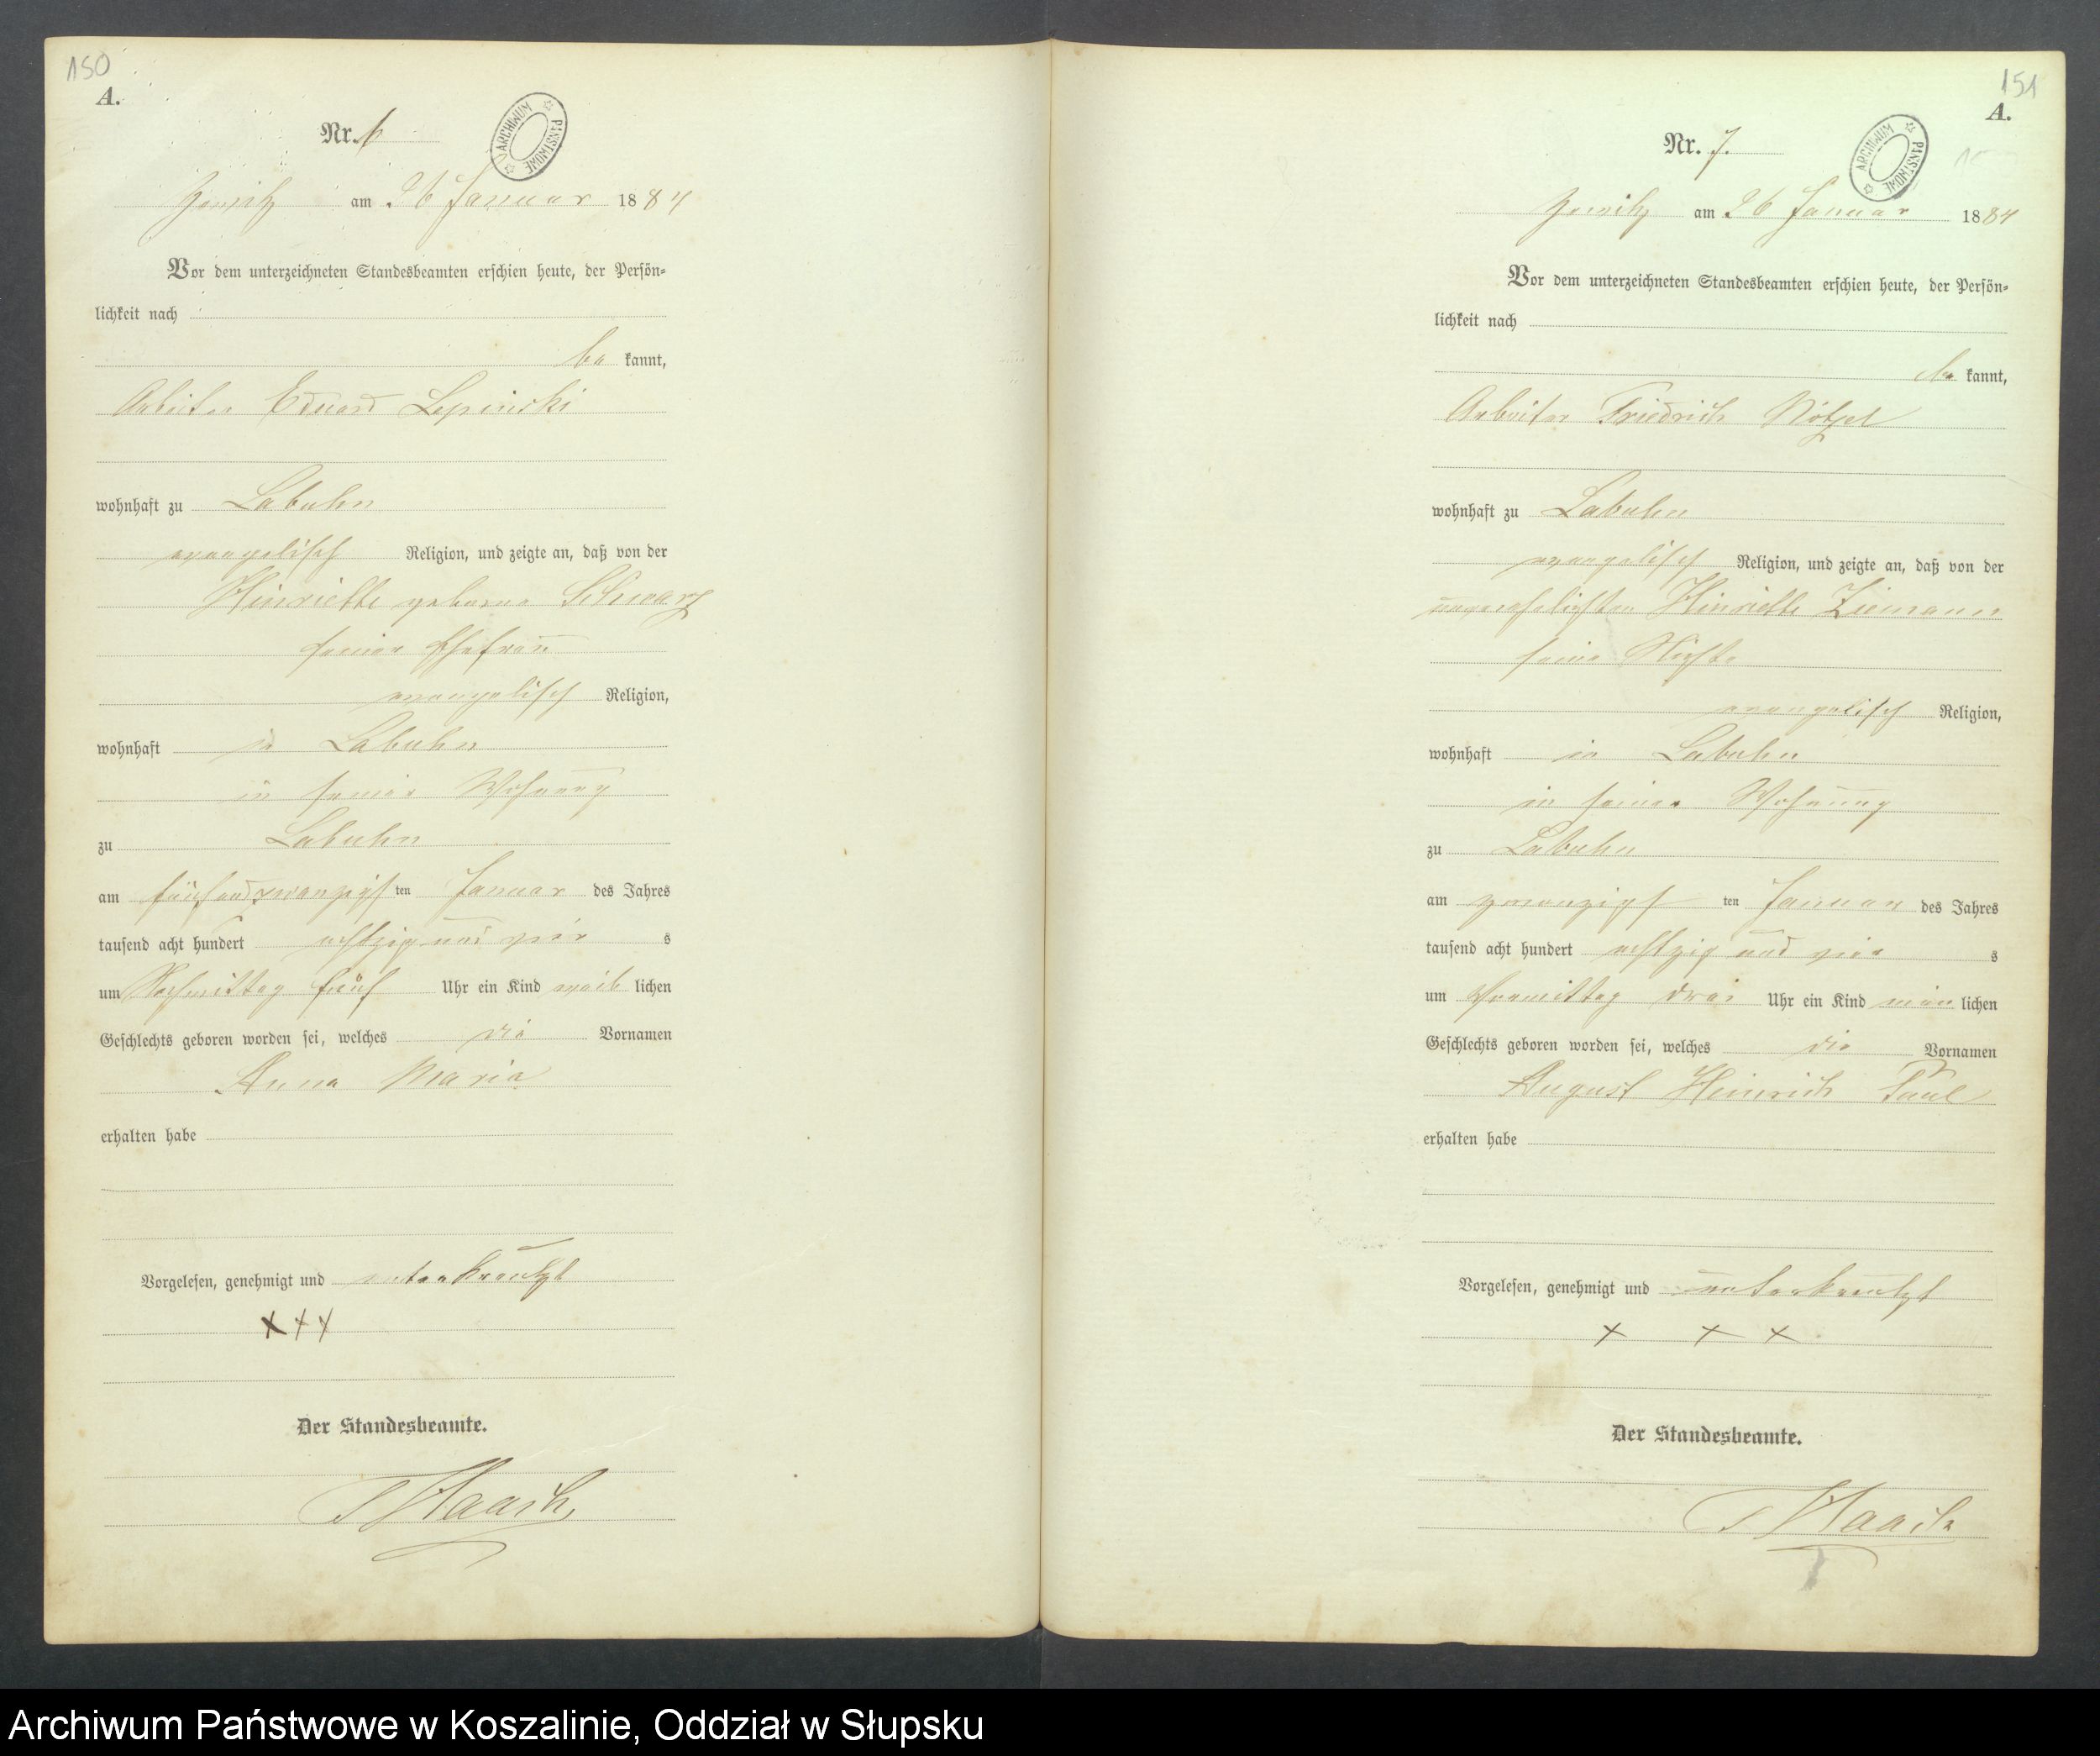 150
A.
Nr. 6
ARCHIWUM PAŃSTWOWE
Zewitz am 26 Januar 1884
Vor dem unterzeichneten Standesbeamten erschien heute, der Persön-
lichkeit nach
be kannt,
Arbeiter Eduard Lepinski
wohnhaft zu Labuhn
evangelisch Religion, und zeigte an, daß von der
Hinriette geborne Schwarz
seiner Ehefrau
evangelisch Religion,
wohnhaft in Labuhn
in seiner Wohnung
zu Labuhn
am fünfundzwanzigsten Januar des Jahres
tausend acht hundert achtzig und vier s
um Nachmittag fünf Uhr ein Kind weib lichen
Geschlechts geboren worden sei, welches die Vornamen
Anna Maria
erhalten habe
Vorgelesen, genehmigt und unterkreutzt
+++
Der Standesbeamte.
Haach
151
A.
Nr. 7.
ARCHIWUM PAŃSTWOWE
Zewitz am 26 Januar 1884
Vor dem unterzeichneten Standesbeamten erschien heute, der Persön-
lichkeit nach
be kannt,
Arbeiter Friedrich Nötzel
wohnhaft zu Labuhn
evangelisch Religion, und zeigte an, daß von der
unverehelichten Hinriette Ziemann
seine Nichte
evangelisch Religion,
wohnhaft in Labuhn
in seiner Wohnung
zu Labuhn
am zwanzigsten Januar des Jahres
tausend acht hundert achtzig und vier s
um Vormittag drei Uhr ein Kind män lichen
Geschlechts geboren worden sei, welches die Vornamen
August Heinrich Paul
erhalten habe
Vorgelesen, genehmigt und unterkreutzt
+ + +
Der Standesbeamte.
Haach
Archiwum Państwowe w Koszalinie, Oddział w Słupsku